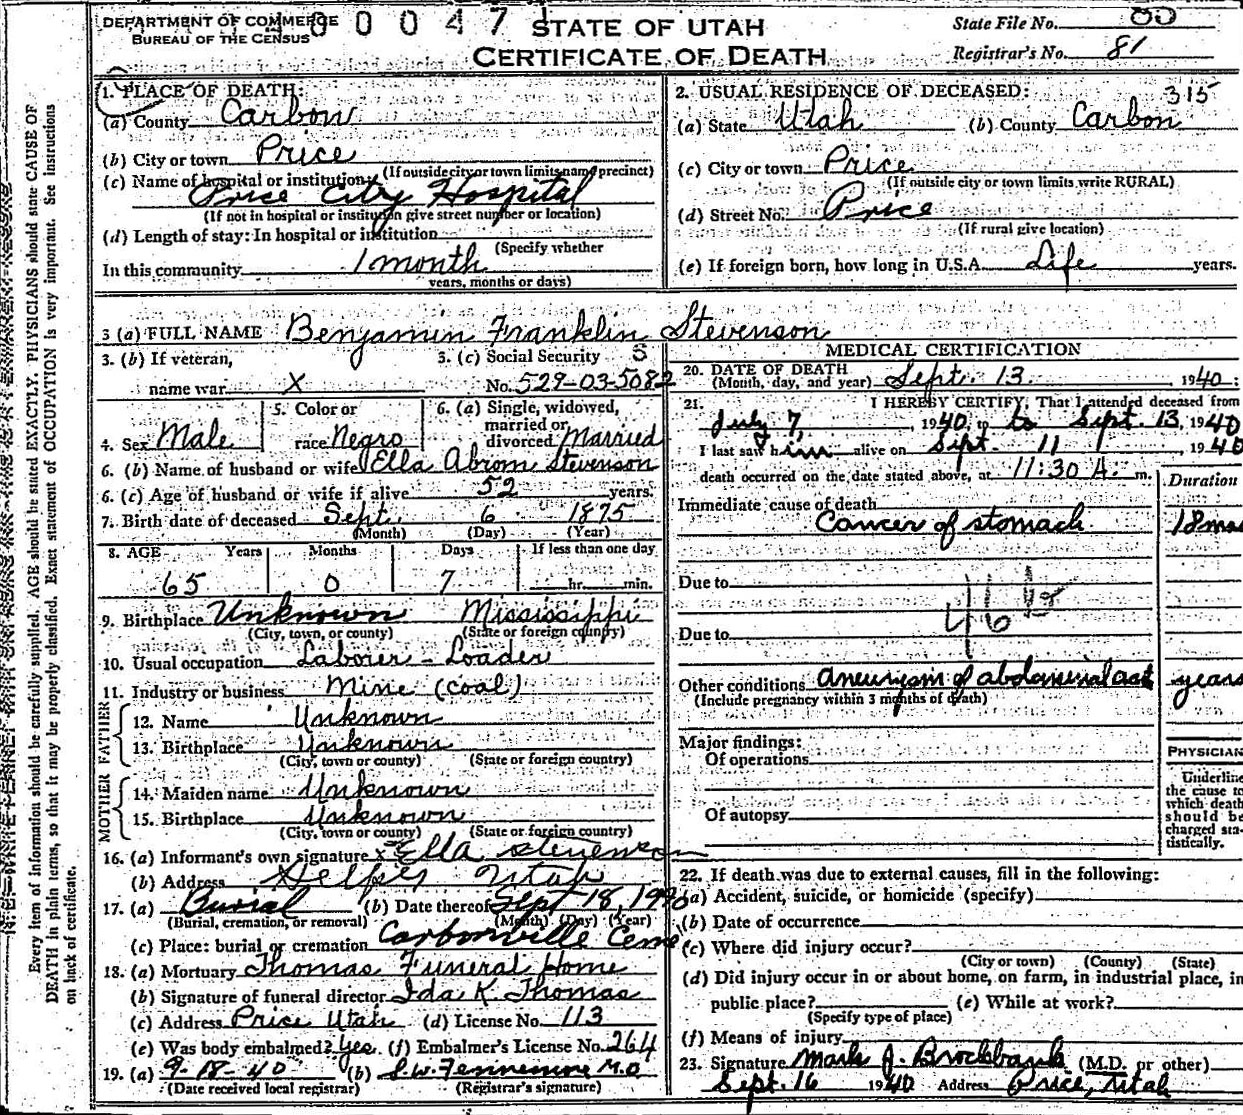 DEPARTMENT OF COMMERCE
BUREAU OF THE CENSUS
0 0 4 7
STATE OF UTAH
CERTIFICATE OF DEATH
State File No.
Registrar's No. 81
Every item of information should be carefully supplied. AGE should be stated EXACTLY. PHYSICIANS should state CAUSE OF
DEATH in plain terms, so that it may be properly classified. Exact statement of OCCUPATION is very important. See instructions
on back of certificate.
1. PLACE OF DEATH:
(a) County Carbon
(b) City or town Price
(If outside city or town limits name precinct)
(c) Name of hospital or institution
Price City Hospital
(If not in hospital or institution give street number or location)
(d) Length of stay: In hospital or institution
(Specify whether
In this community 1 month
years, months or days)
2. USUAL RESIDENCE OF DECEASED: 315
(a) State Utah (b) County Carbon
(c) City or town Price
(If outside city or town limits write RURAL)
(d) Street No. Price
(If rural give location)
(e) If foreign born, how long in U.S.A. Life years.
3 (a) FULL NAME Benjamin Franklin Stevenson
3. (b) If veteran,
name war X
3. (c) Social Security
No. 529-03-5082
4. Sex Male
5. Color or
race Negro
6. (a) Single, widowed,
married or
divorced Married
6. (b) Name of husband or wife Ella Abrom Stevenson
6. (c) Age of husband or wife if alive 52 years.
7. Birth date of deceased Sept. 6 1875
(Month) (Day) (Year)
8. AGE Years Months Days If less than one day
65 0 7 hr. min.
9. Birthplace Unknown Mississippi
(City, town, or county) (State or foreign country)
10. Usual occupation Laborer - Loader
11. Industry or business Mine (coal)
FATHER
12. Name Unknown
13. Birthplace Unknown
(City, town or county) (State or foreign country)
MOTHER
14. Maiden name Unknown
15. Birthplace Unknown
(City, town or county) (State or foreign country)
16. (a) Informant's own signature x Ella Stevenson
(b) Address Helper Utah
17. (a) Burial (b) Date thereof Sept 18, 1940
(Burial, cremation, or removal) (Month) (Day) (Year)
(c) Place: burial or cremation Carbonville Ceme
18. (a) Mortuary Thomas Funeral Home
(b) Signature of funeral director Ida K. Thomas
(c) Address Price Utah (d) License No. 113
(e) Was body embalmed? Yes. (f) Embalmer's License No. 264
19. (a) 9-18-40 (b)
(Date received local registrar) (Registrar's signature)
MEDICAL CERTIFICATION
20. DATE OF DEATH
(Month, day, and year) Sept. 13, 1940;
21. I HEREBY CERTIFY, That I attended deceased from
July 7, 1940, to Sept. 13, 1940
I last saw him alive on Sept. 11, 1940
death occurred on the date stated above, at 11:30 A. m.
Duration
Immediate cause of death
Cancer of stomach 18 mos
Due to
46 b
Due to
Other conditions aneurysm of abdominal aort years
(Include pregnancy within 3 months of death)
Major findings:
Of operations
Of autopsy
PHYSICIAN
Underline
the cause to
which death
should be
charged sta-
tistically.
22. If death was due to external causes, fill in the following:
(a) Accident, suicide, or homicide (specify)
(b) Date of occurrence
(c) Where did injury occur?
(City or town) (County) (State)
(d) Did injury occur in or about home, on farm, in industrial place, in
public place? (e) While at work?
(Specify type of place)
(f) Means of injury
23. Signature Mark J. Brockbank (M.D. or other)
Sept. 16 1940 Address Price, Utah